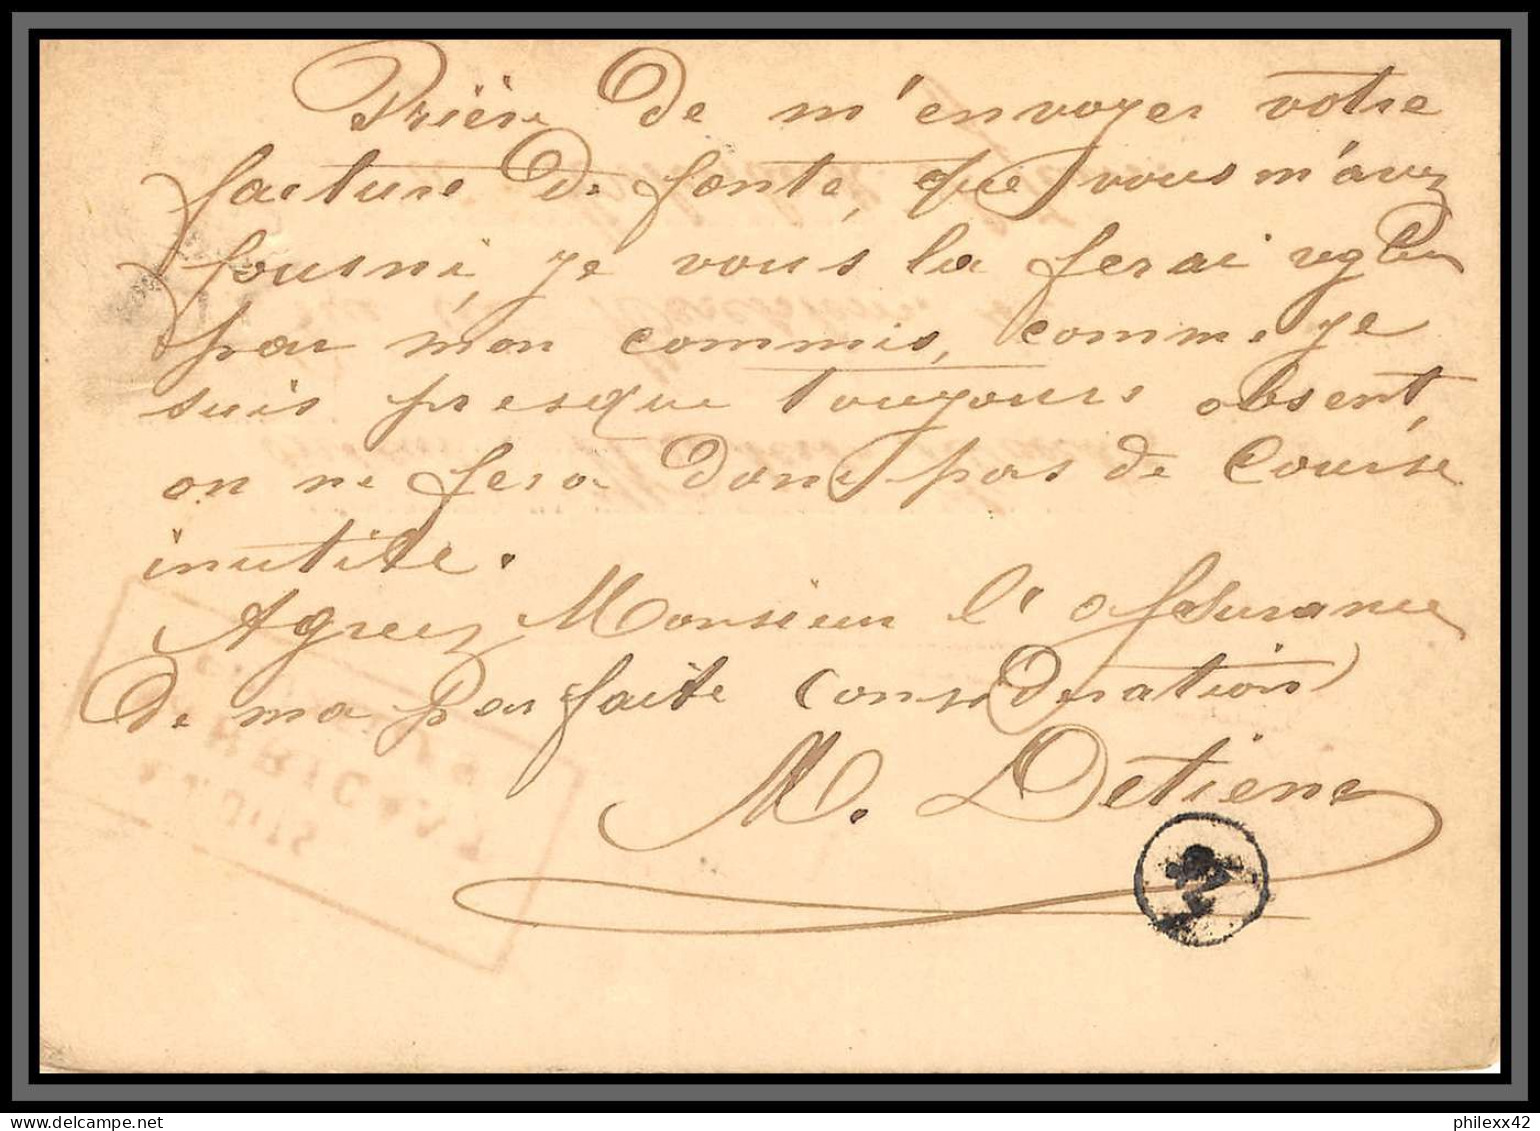 Prière de m'envoyer votre
facture de fonte, que vous m'avez
fourni, je vous la ferai regler
par mon commis, comme je
suis presque toujours absent,
on ne fera donc pas de course
inutile.
Agreez Monsieur l'assurance
de ma parfaite consideration
M. Detiene
philexx42